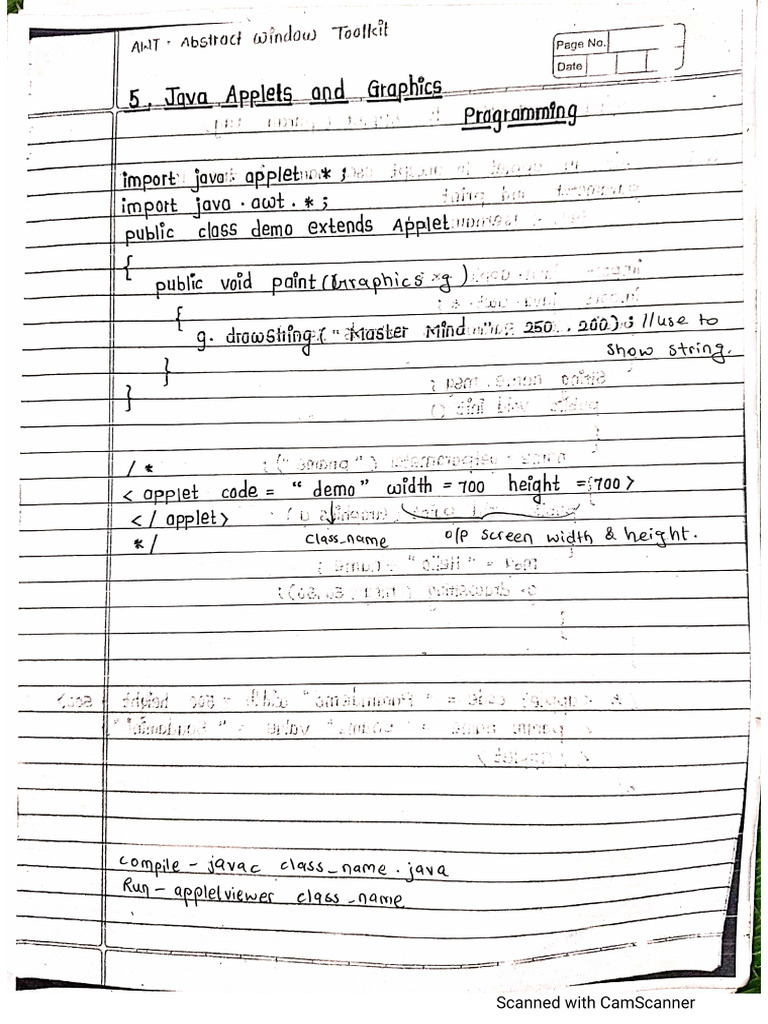 AWT - Abstract Window Toolkit
Page No.
Date
5. Java Applets and Graphics
Programming
import java.applet.*;
import java.awt.*;
public class demo extends Applet
{
public void paint(Graphics g)
{
g. drawstring(" Master Mind ", 250, 200); //use to
show string.
}
}
/*
< applet code = "demo" width = 700 height = 700>
</applet>
*/
class_name o/p screen width & height.
compile - javac class_name.java
Run - appletviewer class_name
Scanned with CamScanner